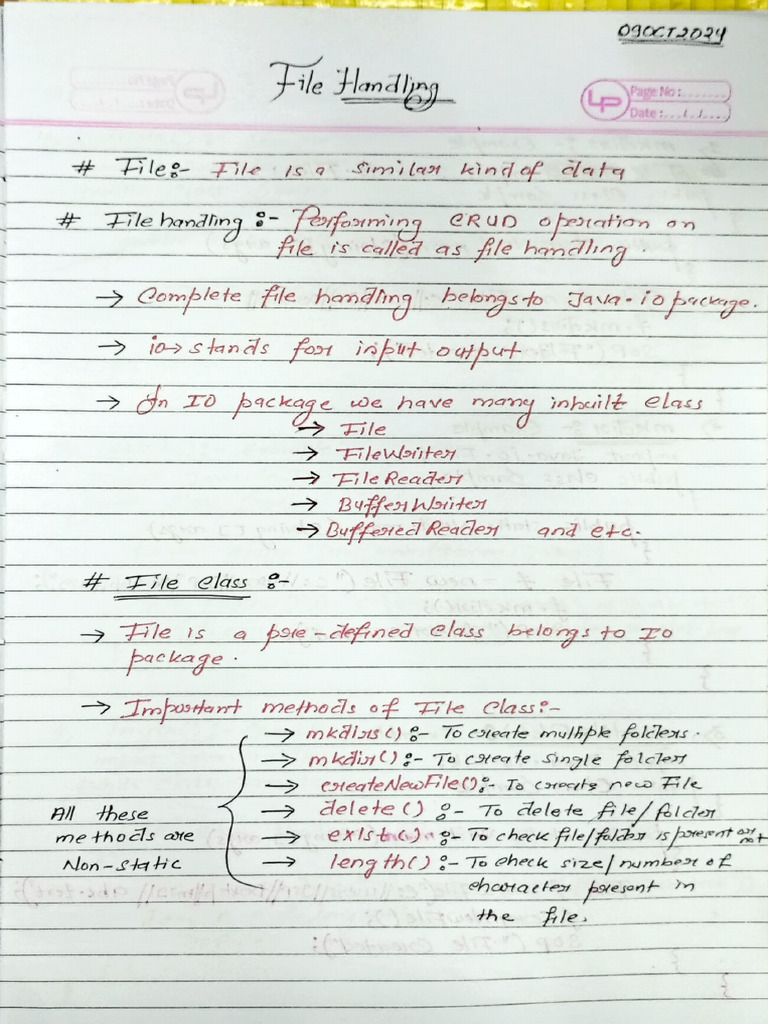 09OCT2024
File Handling
LP
Page No:.......
Date:...../...../.....
# File:- File is a similar kind of data
# File handling :- Performing CRUD operation on
file is called as file handling.
→ Complete file handling belongs to Java.io package.
→ io→ stands for input output
→ In IO package we have many inbuilt class
→ File
→ FileWriter
→ FileReader
→ BufferWriter
→ BufferedReader and etc.
# File class :-
→ File is a pre-defined class belongs to IO
package.
→ Important methods of File Class:-
→ mkdirs() :- To create multiple folders.
→ mkdir() :- To create single folder
→ createNewFile():- To create new File
→ delete() :- To delete file/folder
→ exist() :- To check file/folder is present or not
→ length() :- To check size/number of
character present in
the file.
All these
methods are
Non-static